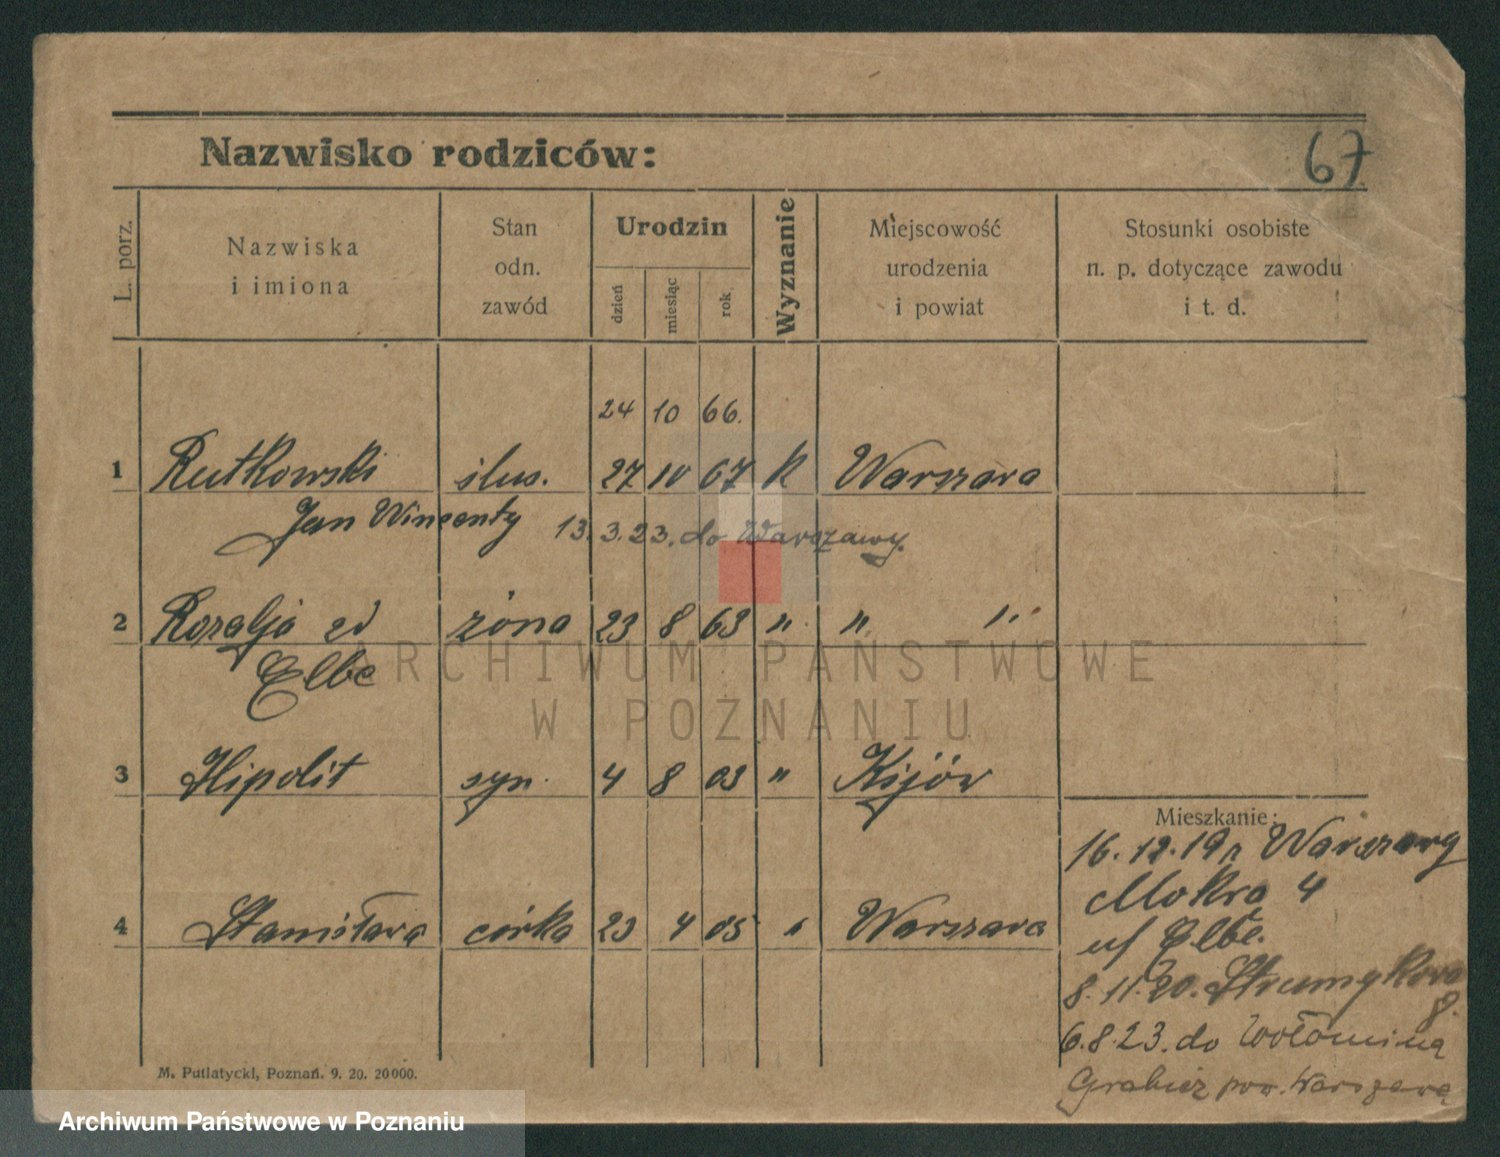 Nazwisko rodziców:
67
L. porz.
Nazwiska
i imiona
Stan
odn.
zawód
Urodzin
dzień
miesiąc
rok
Wyznanie
Miejscowość
urodzenia
i powiat
Stosunki osobiste
n. p. dotyczące zawodu
i t. d.
24 10 66.
1 Rutkowski ślus. 27 10 67 K Warszawa
Jan Wincenty 13.3.23. do Warszawy.
2 Rozalja zd żóna 23 8 63 " " "
Elbe
ARCHIWUM PAŃSTWOWE
W POZNANIU
3 Hipolit syn. 4 8 03 " Kijów
Mieszkanie:
16.12.19 r Warszawy
Mokra 4
u/ Elbe.
4 Stanisława córka 23 4 05 " Warszawa
8.11.20. Strumykowa
8.
6.8.23. do Wołomina
pow. Warszawa
M. Putiatycki, Poznań. 9. 20. 20000.
Archiwum Państwowe w Poznaniu